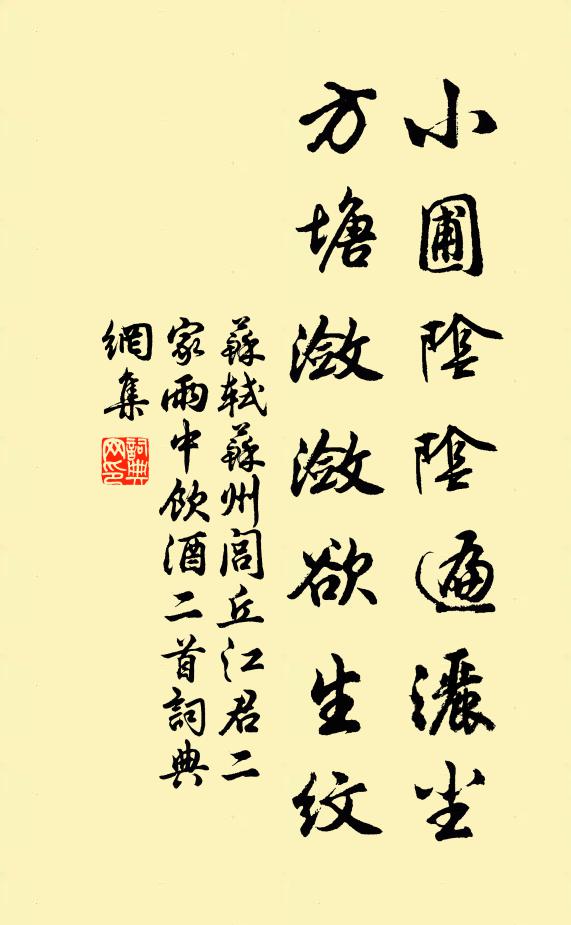 小圃陰陰遍灑塵
方塘瀲瀲欲生紋
蘇軾蘇州閭丘江君二
家雨中飲酒二首詞典
網集
詞典
网印